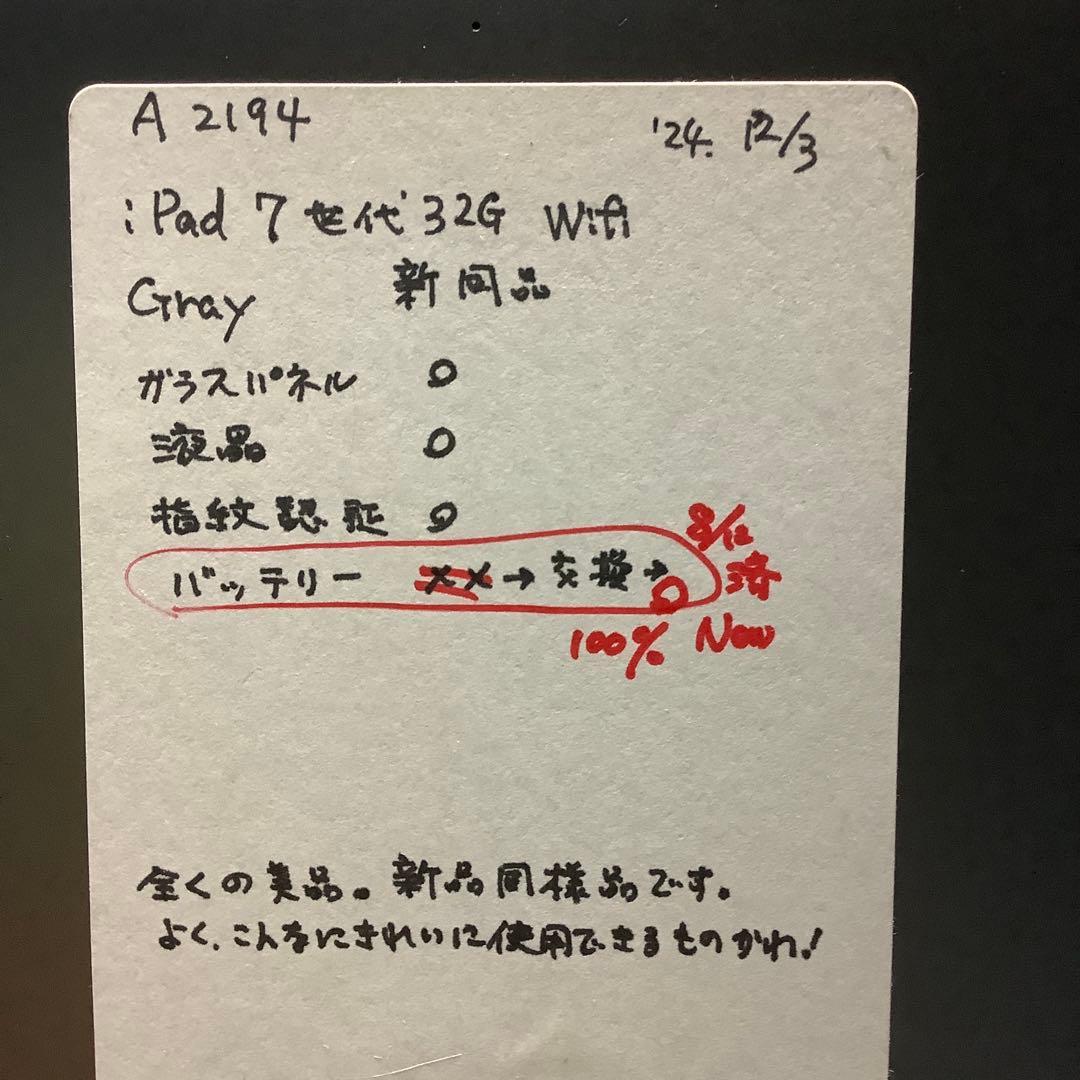 A 2194
'24. 12/3
iPad 7世代 32G Wifi
Gray 新同品
ガラスパネル ○
液晶 ○
指紋認証 ○
バッテリー ×× → 交換 → ○
済
100% New
全くの美品。新品同様品です。
よく、こんなにきれいに使用できるものかね!